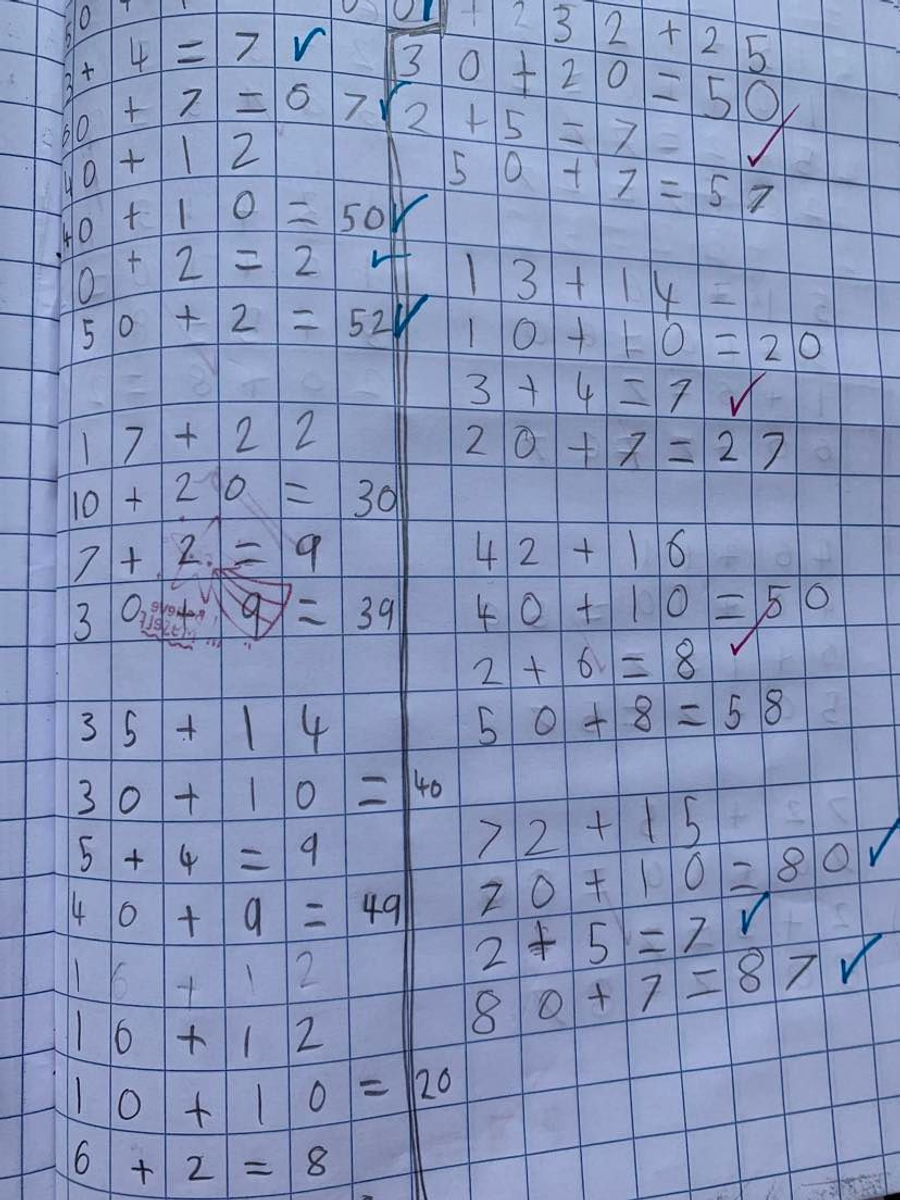 3 + 4 = 7 ✓
60 + 7 = 67 ✓
40 + 12
40 + 10 = 50 ✓
0 + 2 = 2 ✓
50 + 2 = 52 ✓
17 + 22
10 + 20 = 30
7 + 2 = 9
30 + 9 = 39
35 + 14
30 + 10 = 40
5 + 4 = 9
40 + 9 = 49
16 + 12
16 + 12
10 + 10 = 20
6 + 2 = 8
32 + 25
30 + 20 = 50
2 + 5 = 7 ✓
50 + 7 = 57
13 + 14 =
10 + 10 = 20
3 + 4 = 7 ✓
20 + 7 = 27
42 + 16
40 + 10 = 50
2 + 6 = 8 ✓
50 + 8 = 58
72 + 15
70 + 10 = 80 ✓
2 + 5 = 7 ✓
80 + 7 = 87 ✓